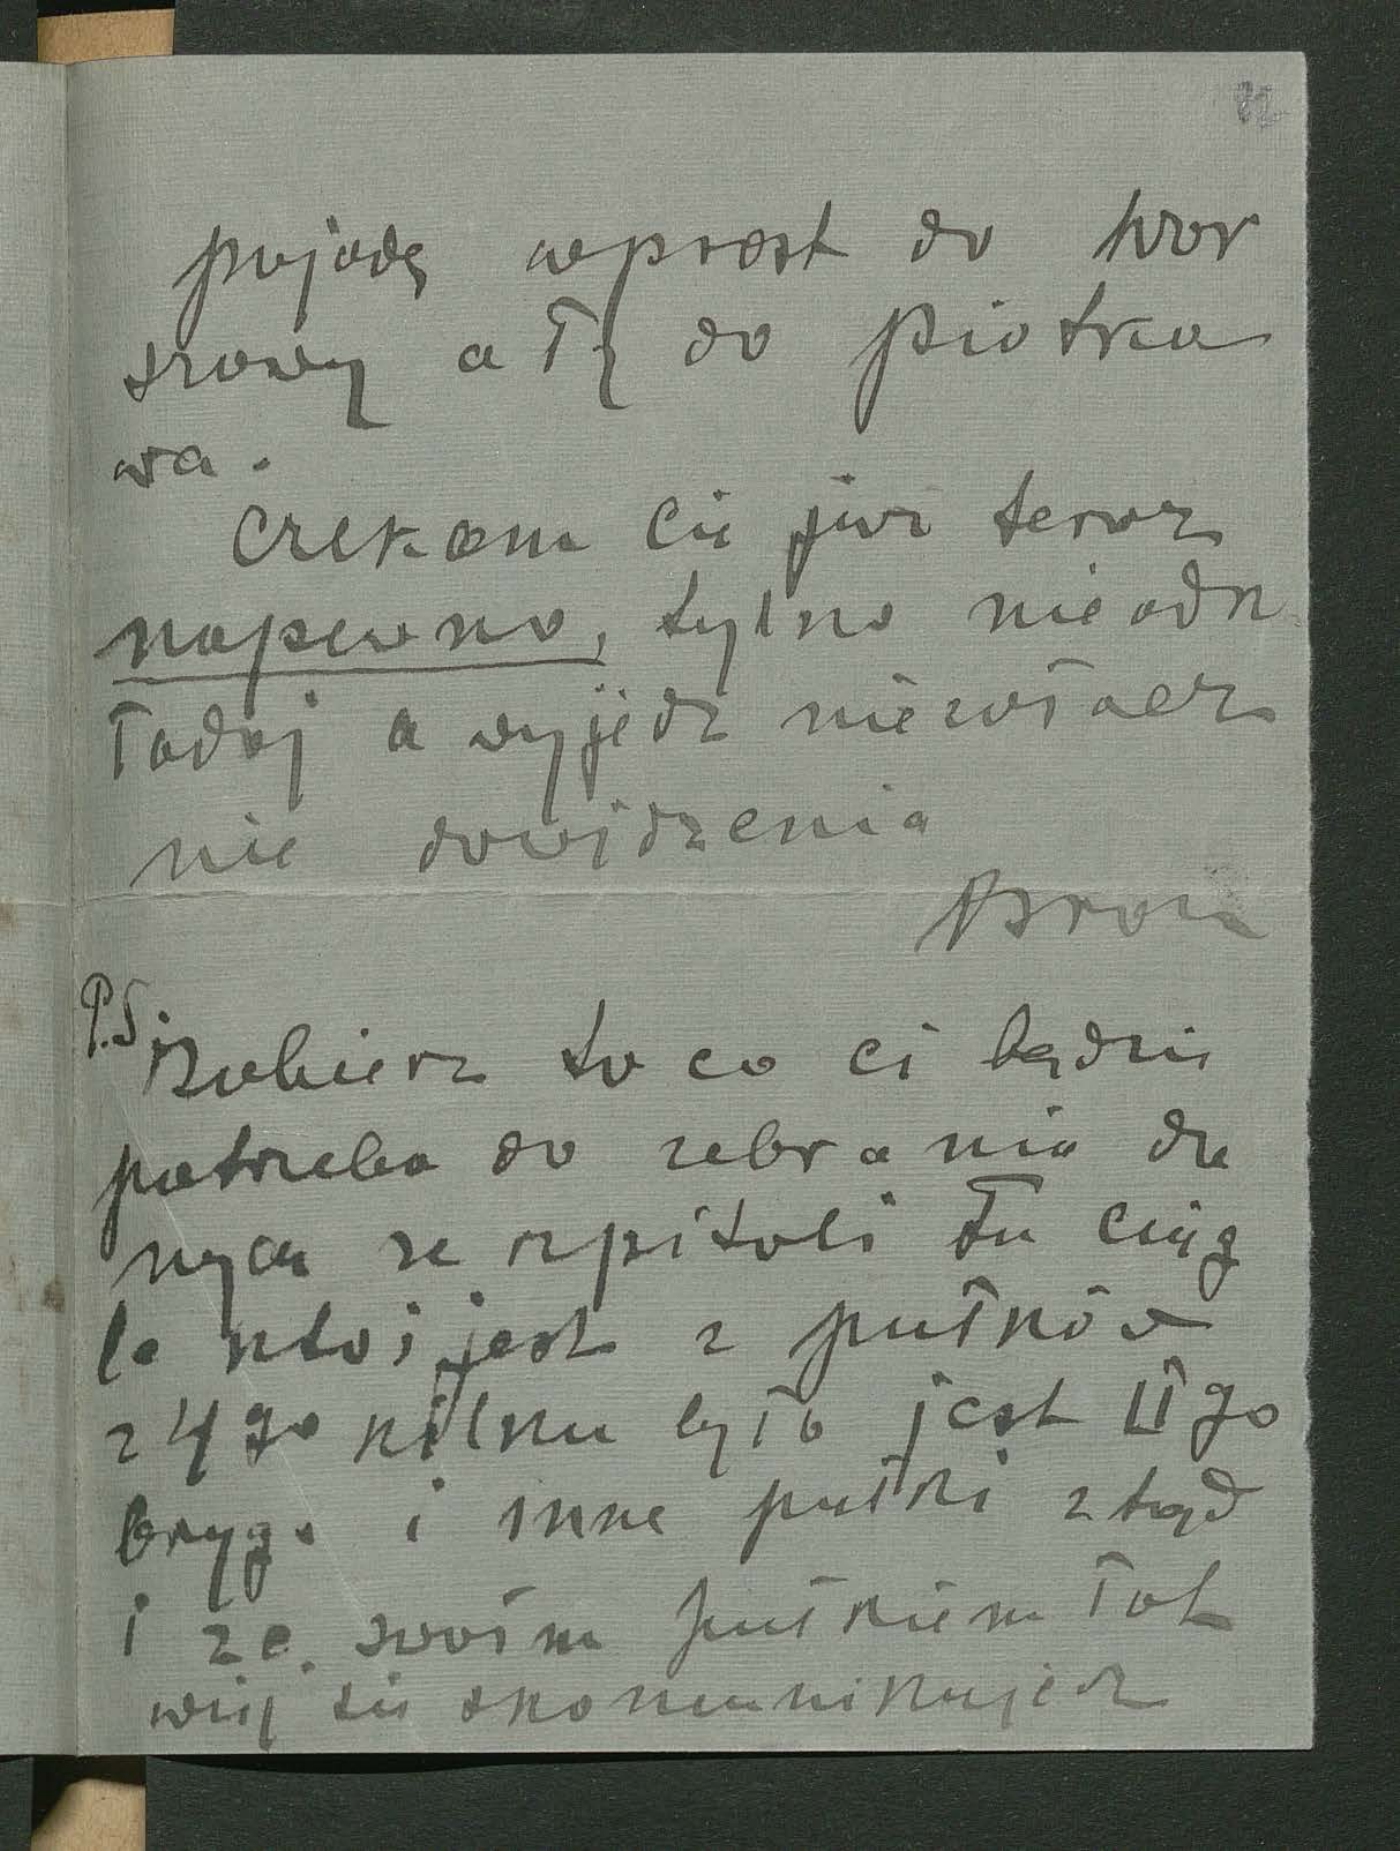 82
pojadę wprost do War
szawy a Ty do Piotrko
wa.
Czekam Cię już teraz
napewno, tylko nie odk
ładaj a wyjedz niezwłocz
nie dowidzenia
Bron
P.S. Zabierz to co ci będzie
potrzeba do zebrania da
nych ze szpitali tu ciąg
le ktoś jest z pułków
z 4go kilku było jest II go
bryg. i inne pułki ztąd
i ze swoim pułkiem łat
wiej się skomunikujesz